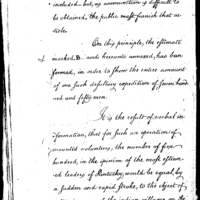 included - but, as ammunition is difficult to
be obtained, the public must furnish that ar-
ticle.
On this principle, the estimate
marked B. and herewith annexed, has been
formed, in order to show the entire amount
of one such desultory expedition of seven hund-
red and fifty men.
It is the result of verbal in
formation, that for such an operation of
mounted volunteers, the number of five
hundred, in the opinion of the most estem-
ed leaders of Kentucky, would be equal, by
a sudden and rapid stroke, to the object of